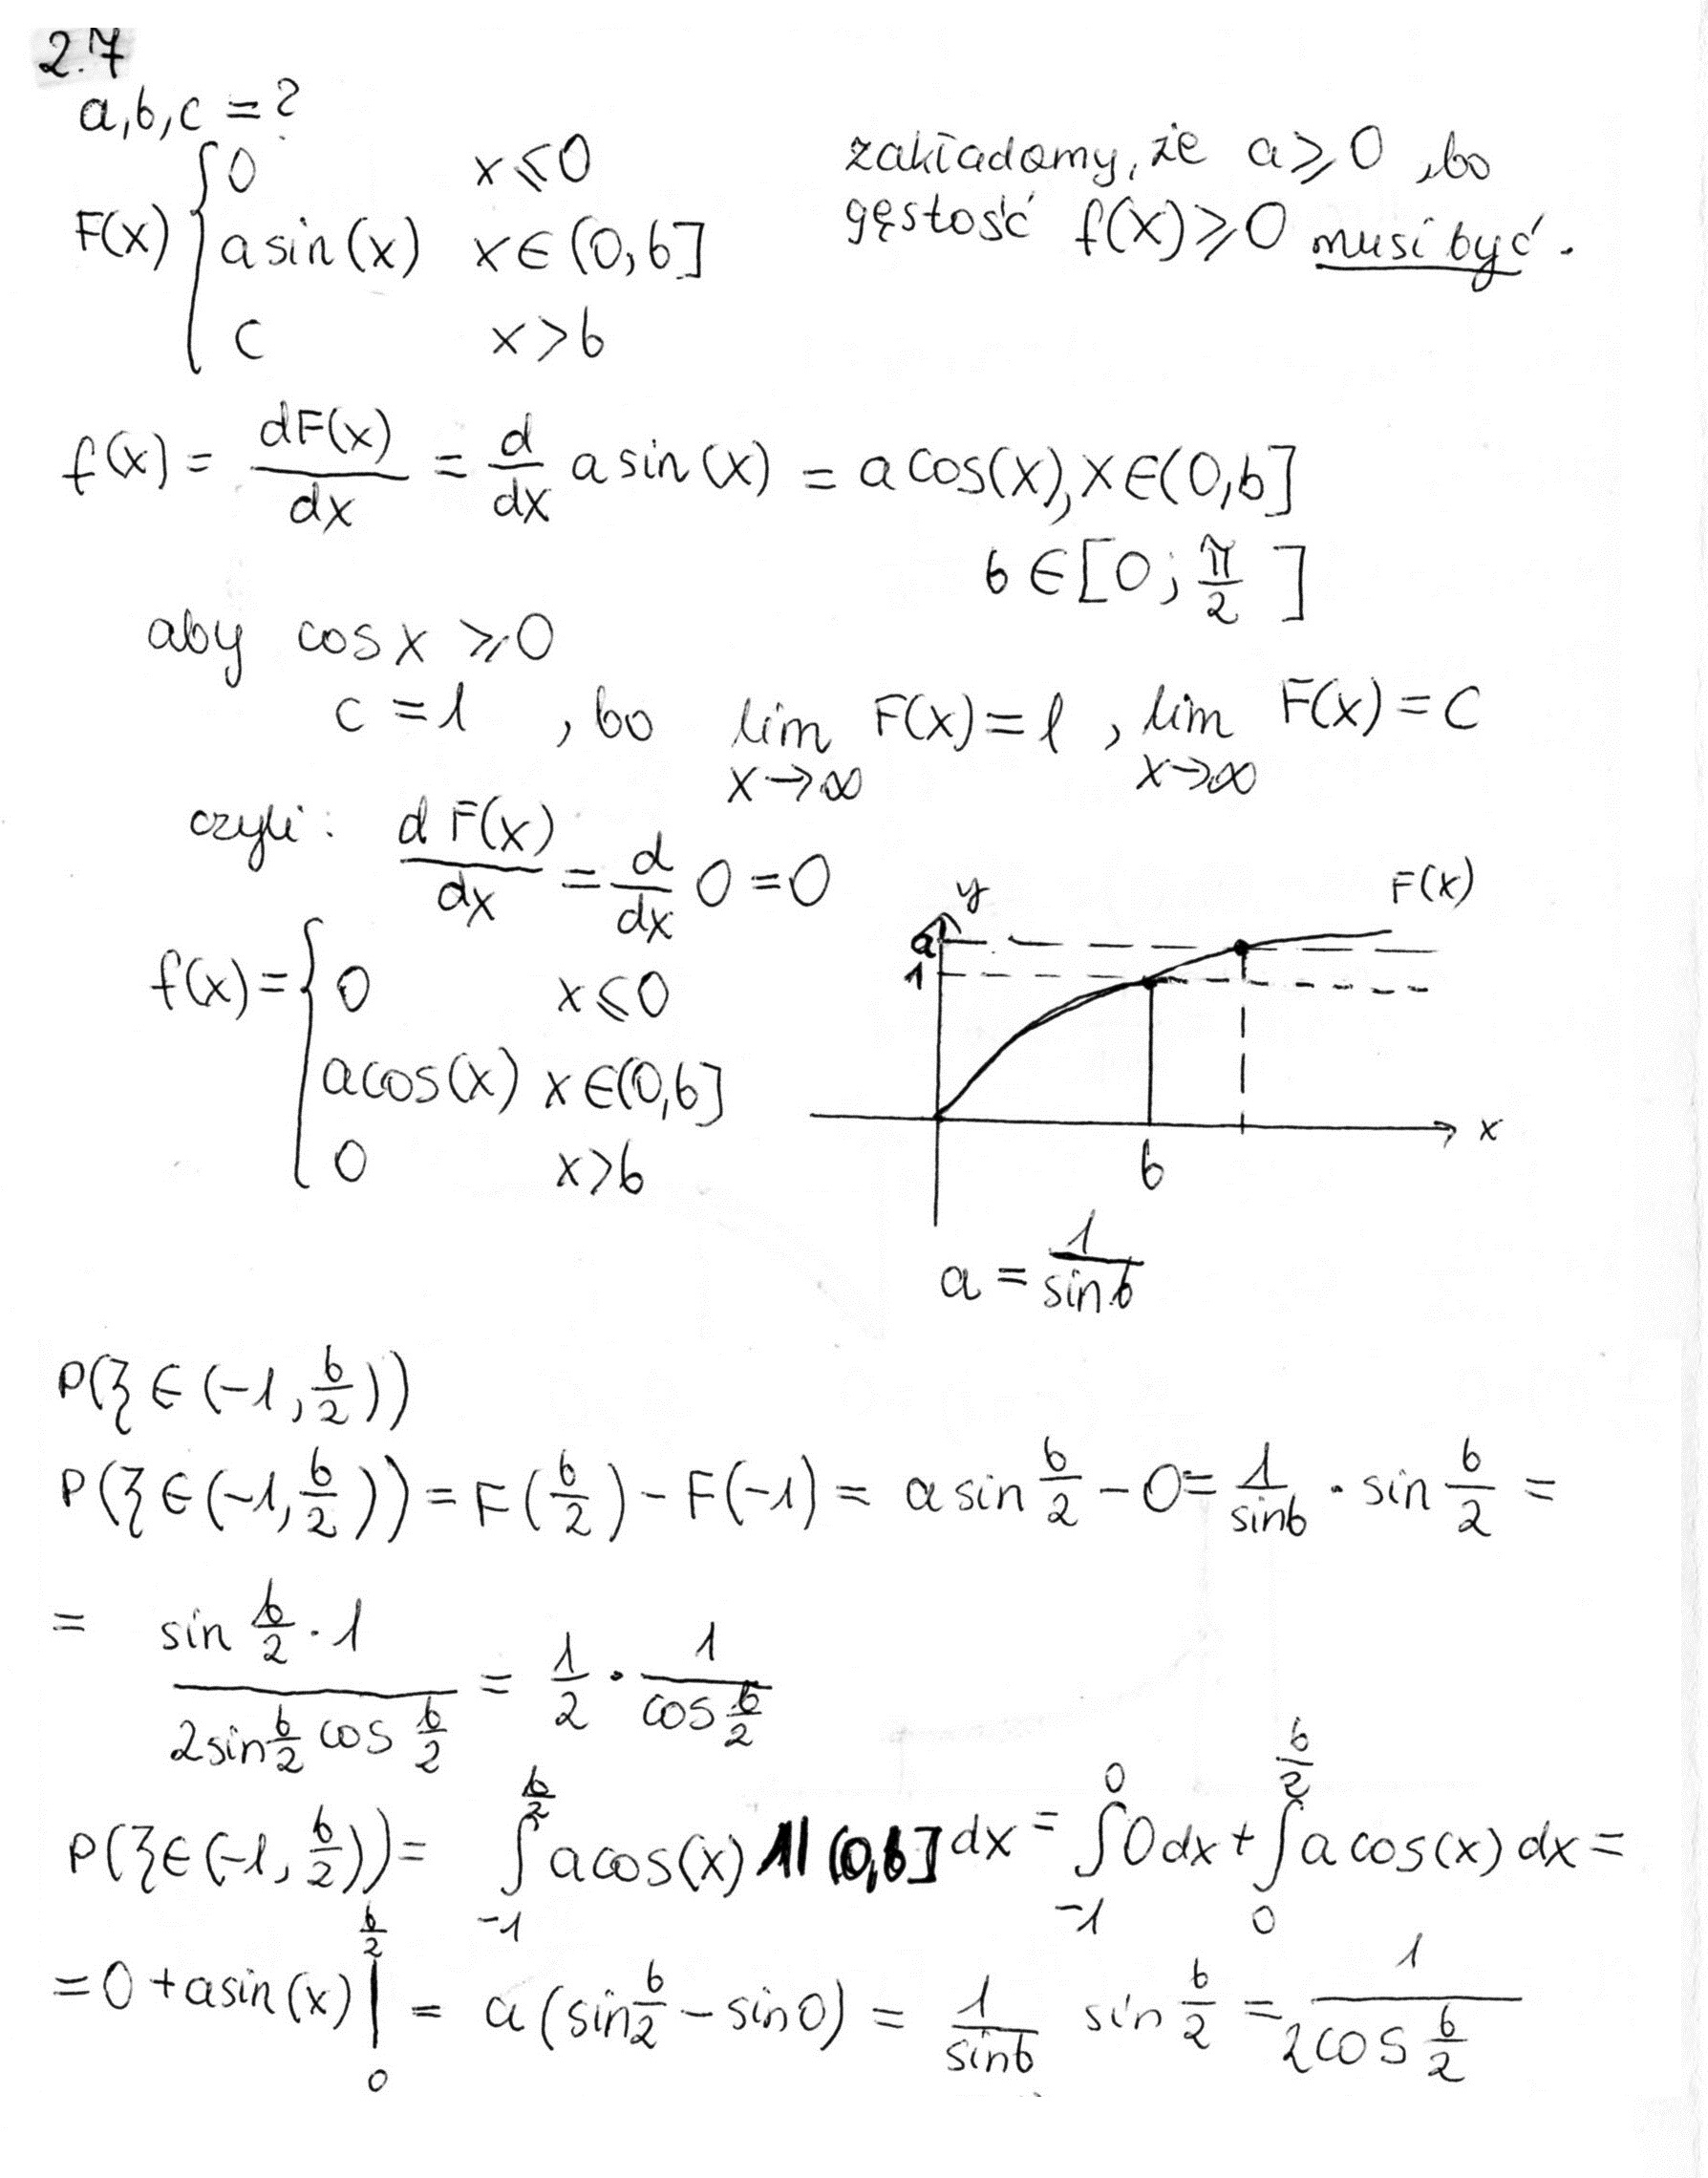 2.7
a,b,c = ?
F(x) { 0 x ≤ 0
a sin(x) x ∈ (0, b]
c x > b
zakładamy, że a ≥ 0, bo
gęstość f(x) ≥ 0 musi być.
f(x) = dF(x)/dx = d/dx a sin(x) = a cos(x), x ∈ (0, b]
b ∈ [0; π/2]
aby cos x ≥ 0
c = 1, bo lim x→∞ F(x) = 1, lim x→∞ F(x) = c
czyli: dF(x)/dx = d/dx 0 = 0
f(x) = { 0 x ≤ 0
a cos(x) x ∈ (0, b]
0 x > b
y
F(x)
a
1
b
x
a = 1/sin b
P(ξ ∈ (-1, b/2))
P(ξ ∈ (-1, b/2)) = F(b/2) - F(-1) = a sin b/2 - 0 = 1/sin b · sin b/2 =
= (sin b/2 · 1)/(2 sin b/2 cos b/2) = 1/2 · 1/(cos b/2)
P(ξ ∈ (-1, b/2)) = ∫_{-1}^{b/2} a cos(x) 1l (0, b] dx = ∫_{-1}^{0} 0 dx + ∫_{0}^{b/2} a cos(x) dx =
= 0 + a sin(x) |_{0}^{b/2} = a (sin b/2 - sin 0) = 1/sin b sin b/2 = 1/(2 cos b/2)